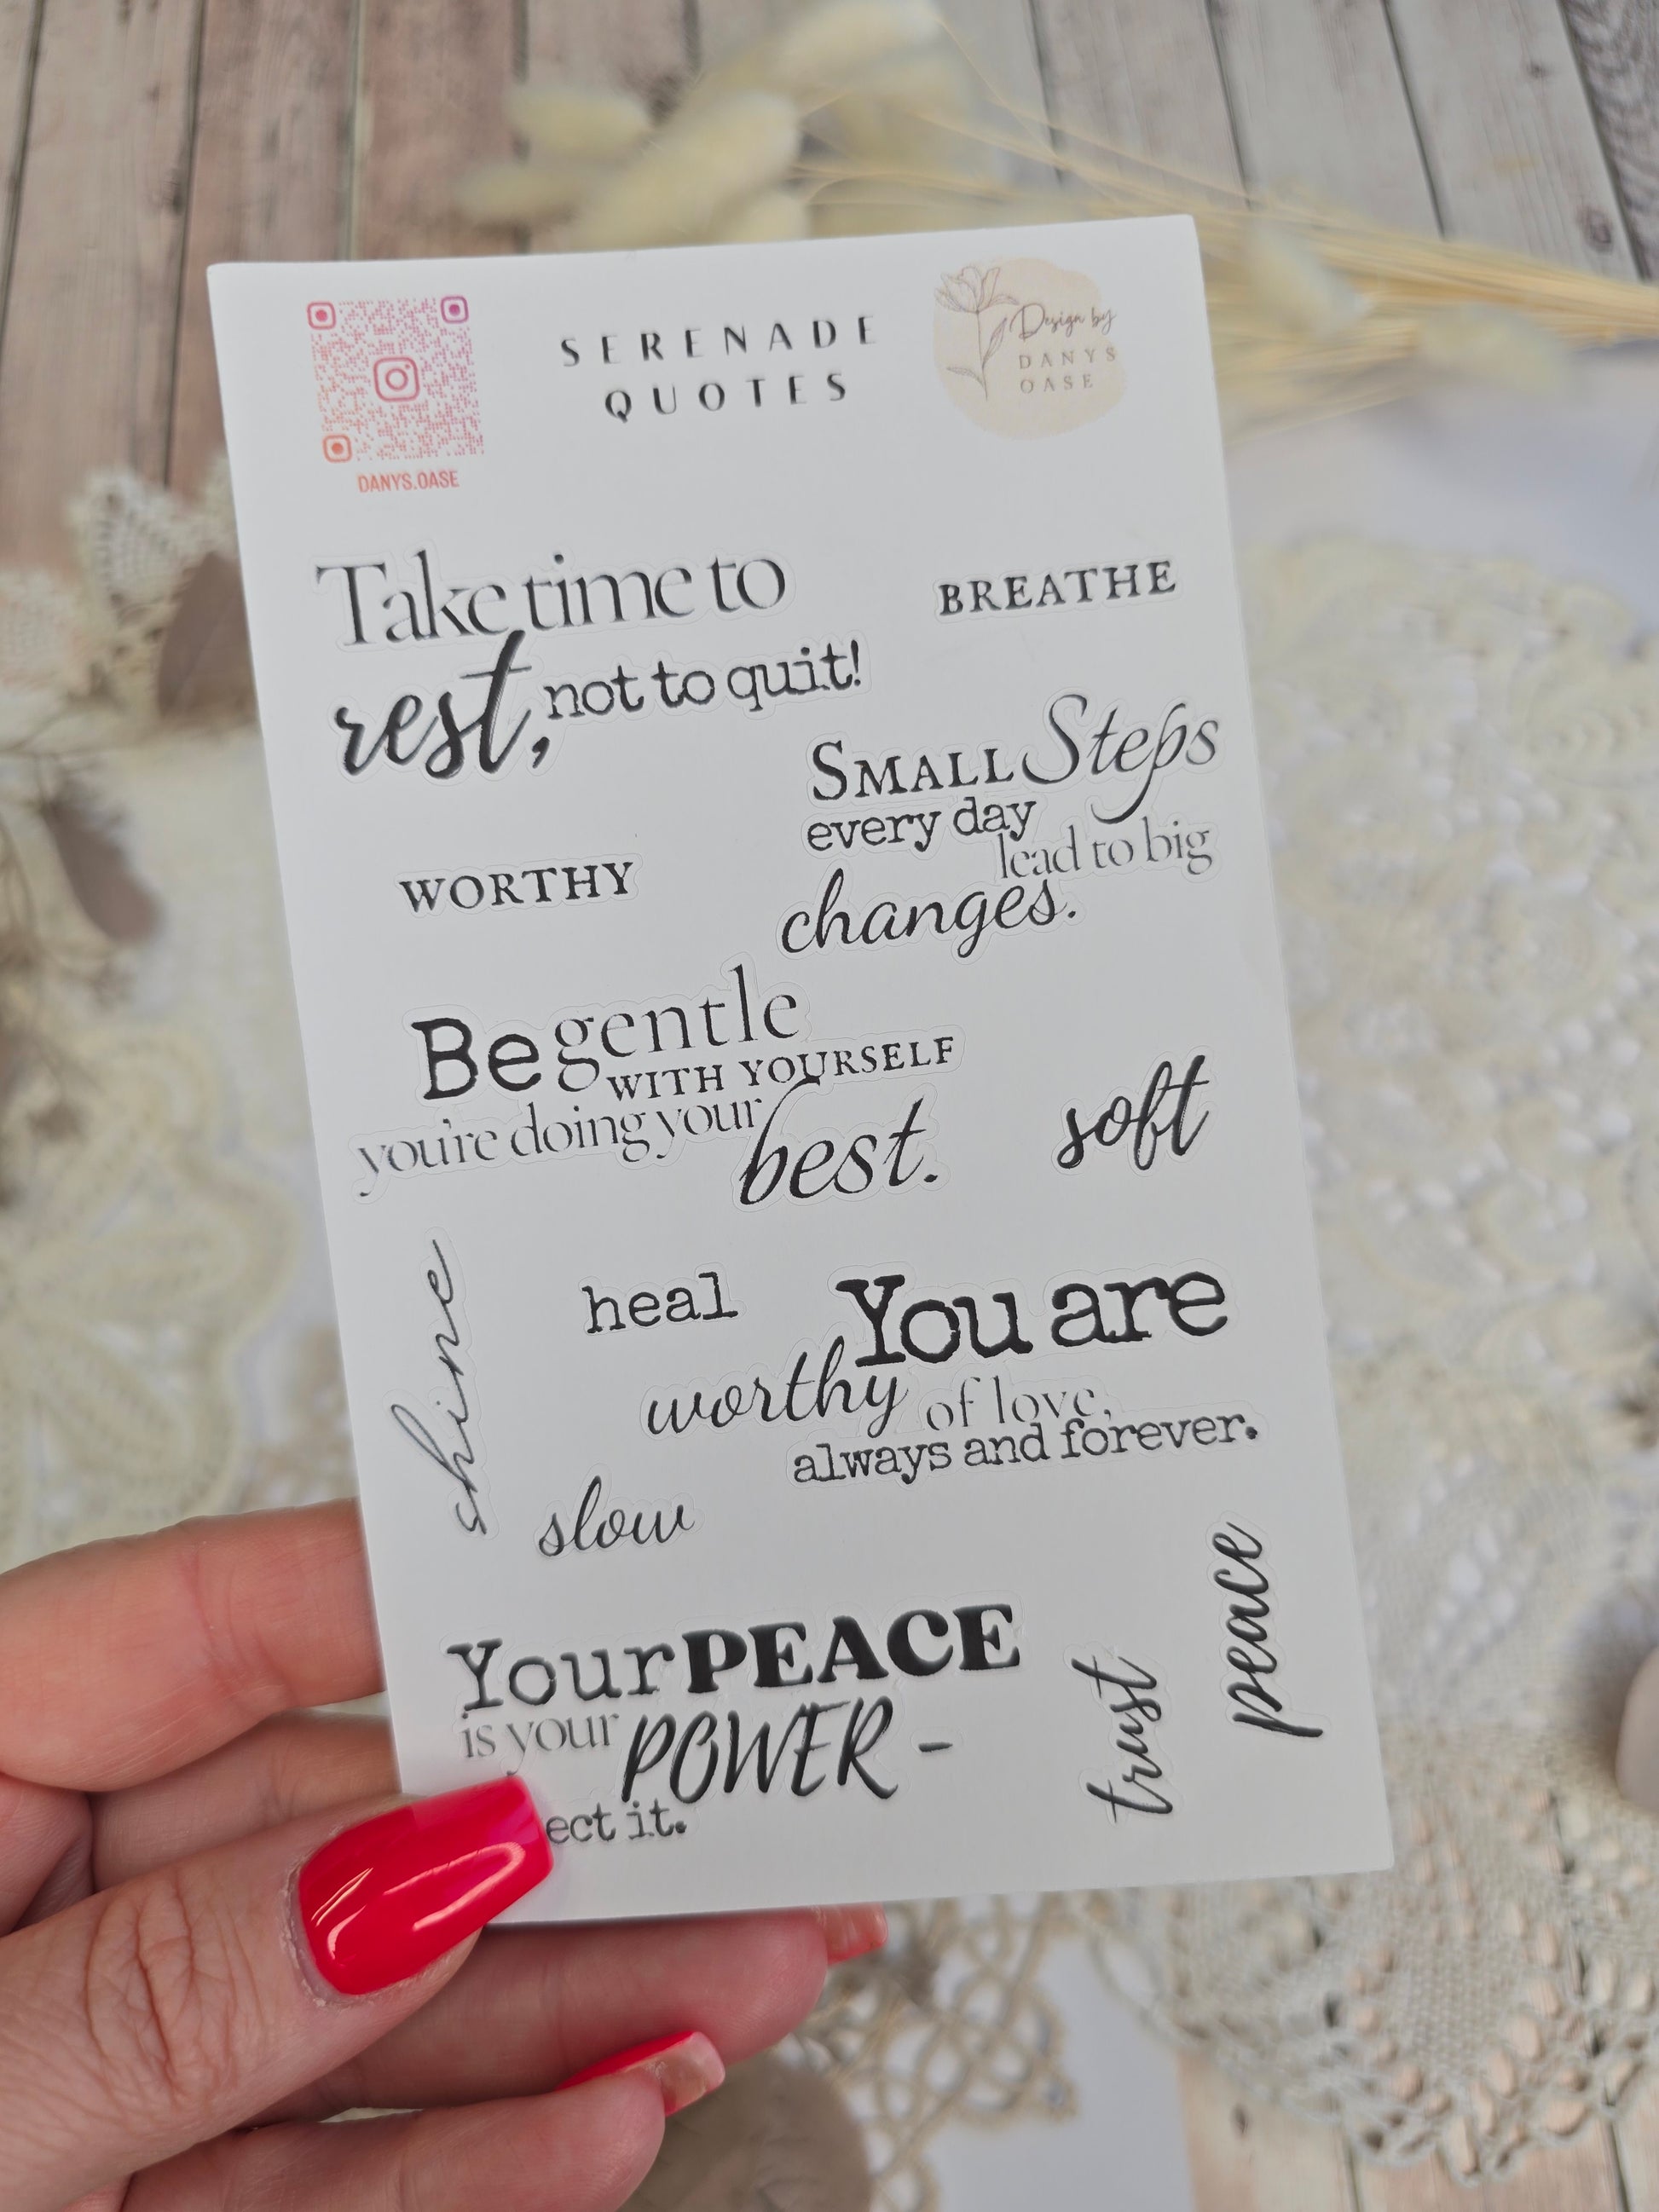 SERENADE
QUOTES
Design by
DANYS
OASE
DANYS.OASE
Take time to
rest, not to quit!
BREATHE
SMALL Steps
every day
lead to big
changes.
WORTHY
Be gentle
WITH YOURSELF
you're doing your
best.
soft
shine
heal
You are
worthy of love,
always and forever.
slow
peace
Your PEACE
is your POWER -
ect it.
trust